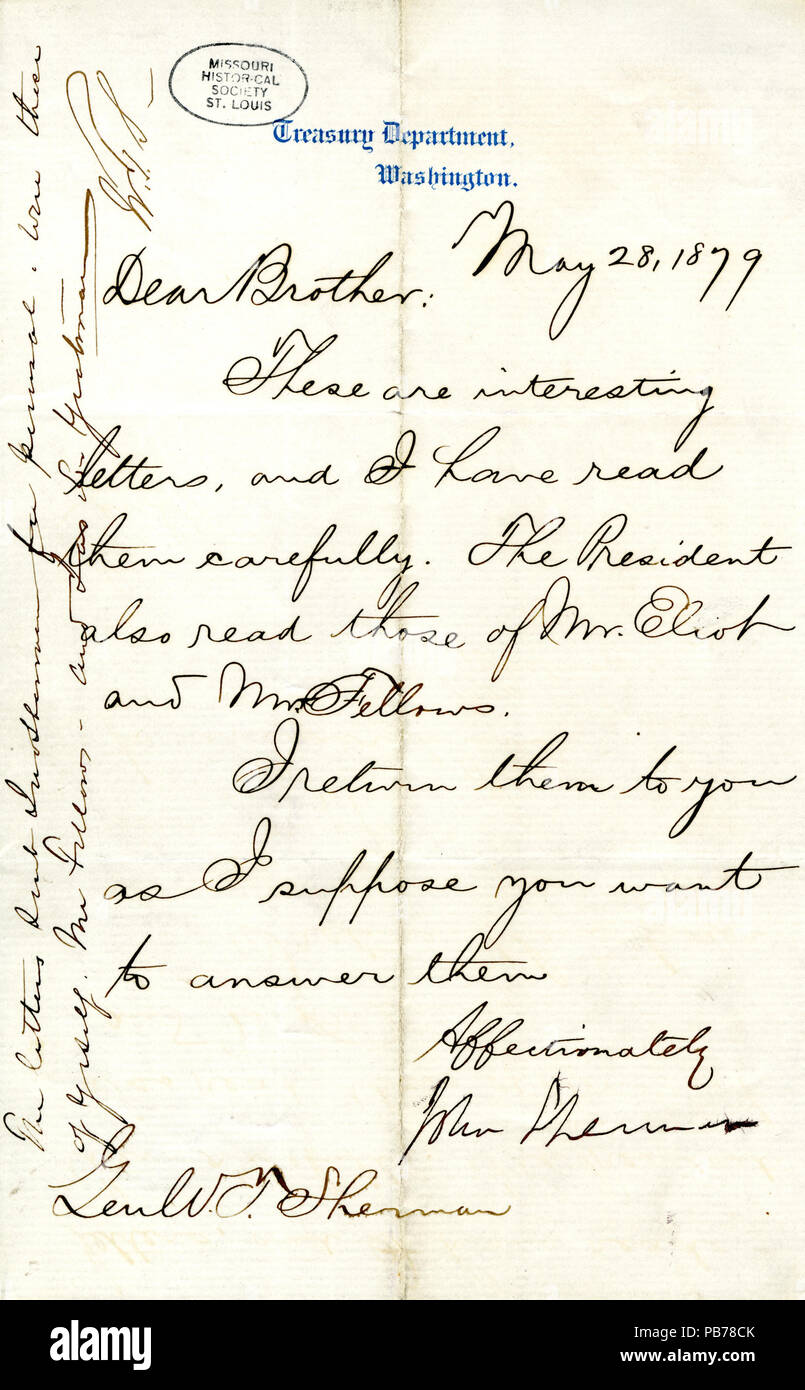 MISSOURI
HISTORICAL
SOCIETY
ST. LOUIS
Treasury Department,
Washington.
May 28, 1879
Dear Brother:
These are interesting
letters, and I have read
them carefully. The President
also read those of Mr. Eliot
and Mr. Fellows.
I return them to you
as I suppose you want
to answer them
Affectionately
John Sherman
Genl W. T. Sherman
The letters sent Jno Sherman for perusal, were these
of yrself, Mr Fellows - and Jas E. Yeatman
W.T.S.
alamy
Image ID: PB78CK
www.alamy.com